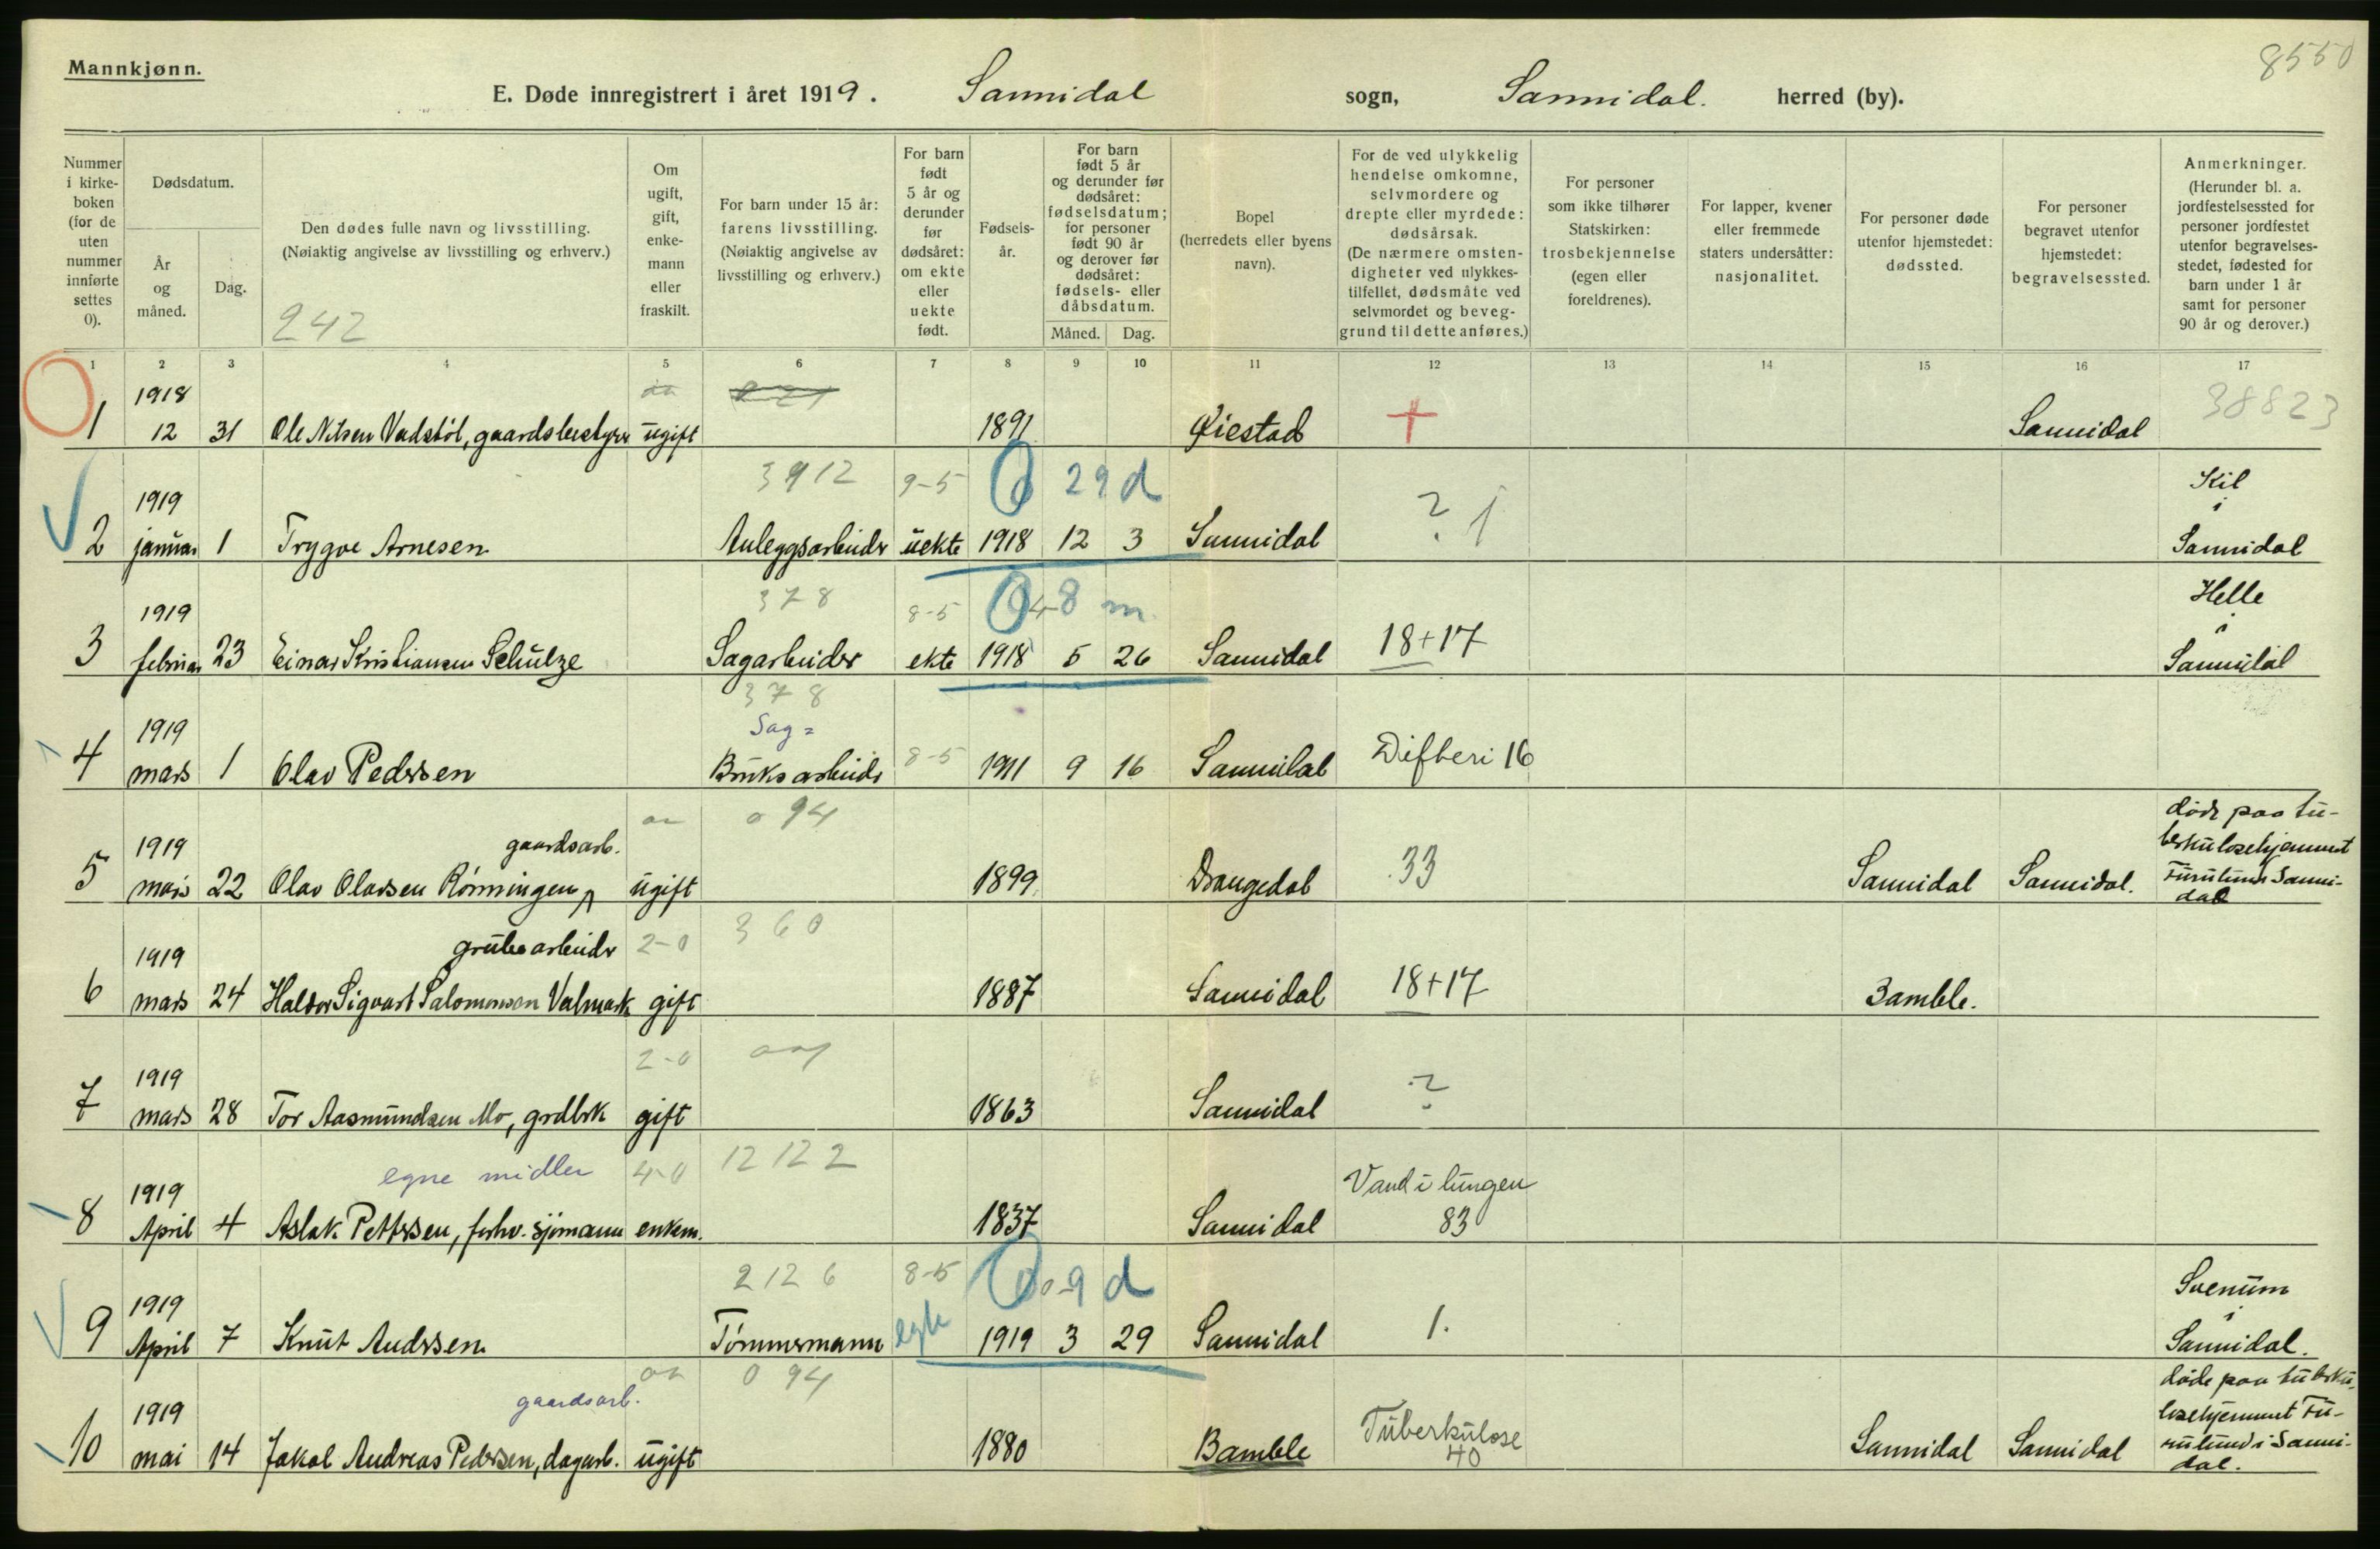 Mannkjønn.
8550
E. Døde innregistrert i året 1919. Sannidal sogn, Sannidal. herred (by).
Nummer i kirke- boken (for de uten nummer innførte settes 0).
Dødsdatum.
År og måned.
Dag.
Den dødes fulle navn og livsstilling.
(Nøiaktig angivelse av livsstilling og erhverv.)
242
Om ugift, gift, enke- mann eller fraskilt.
For barn under 15 år: farens livsstilling. (Nøiaktig angivelse av livsstilling og erhverv.)
For barn født 5 år og derunder før dødsåret: om ekte eller uekte født.
Fødsels- år.
For barn født 5 år og derunder før dødsåret: fødselsdatum; for personer født 90 år og derover før dødsåret: fødsels- eller dåbsdatum.
Måned. Dag.
Bopel (herredets eller byens navn).
For de ved ulykkelig hendelse omkomne, selvmordere og drepte eller myrdede: dødsårsak. (De nærmere omsten- digheter ved ulykkes- tilfellet, dødsmåte ved selvmordet og beveg- grund til dette anføres.)
For personer som ikke tilhører Statskirken: trosbekjennelse (egen eller foreldrenes).
For lapper, kvener eller fremmede staters undersåtter: nasjonalitet.
For personer døde utenfor hjemstedet: dødssted.
For personer begravet utenfor hjemstedet: begravelsessted.
Anmerkninger. (Herunder bl. a. jordfestelsessted for personer jordfestet utenfor begravelses- stedet, fødested for barn under 1 år samt for personer 90 år og derover.)
1 2 3 4 5 6 7 8 9 10 11 12 13 14 15 16 17
1918 38823
1 12 31 Ole Nilsen Vadstöl, gaardsbestyrer ugift 1891 Øiestad + Sannidal
3912 9-5 0 29 d Kil
1919 ? 1 i
2 januar 1 Trygve Arnesen Anleggsarbeider uekte 1918 12 3 Sannidal Sannidal
378 8-5 0 8 m Helle
1919 i
3 februar 23 Einar Kristiansen Schulze Sagarbeider ekte 1918 5 26 Sannidal 18+17 Sannidal
378
1919 Sag=
4 mars 1 Olav Pedersen Bruksarbeider 8-5 1911 9 16 Sannidal Difteri 16
094 døde paa tu-
1919 gaardsarb. berkulosehjemmet
5 mars 22 Olav Olavsen Rönningen ugift 1899 Drangedal 33 Sannidal Sannidal. Furulund Sanni-
dal
1919 grubearbeider 2-0 360
6 mars 24 Haldor Sigvart Salomonsen Valmark gift 1887 Sannidal 18+17 Bamble.
1919 2-0
7 mars 28 Tor Aasmundsen Mo, grdbrk gift 1863 Sannidal ?
egne midler 4-0 12122
1919 Vand i lungen
8 April 4 Aslak Pettersen, forhv. sjömann enkem. 1837 Sannidal 83
2126 8-5 0 0-9 d Svenum
1919 i
9 April 7 Knut Andersen Tömmermann egte 1919 3 29 Sannidal 1. Sannidal.
094 døde paa tuberku-
1919 gaardsarb. losehjemmet Fu-
10 mai 14 Jakob Andreas Pedersen, dagarb. ugift 1880 Bamble Tuberkulose Sannidal Sannidal rulund i Sanni-
40 dal.